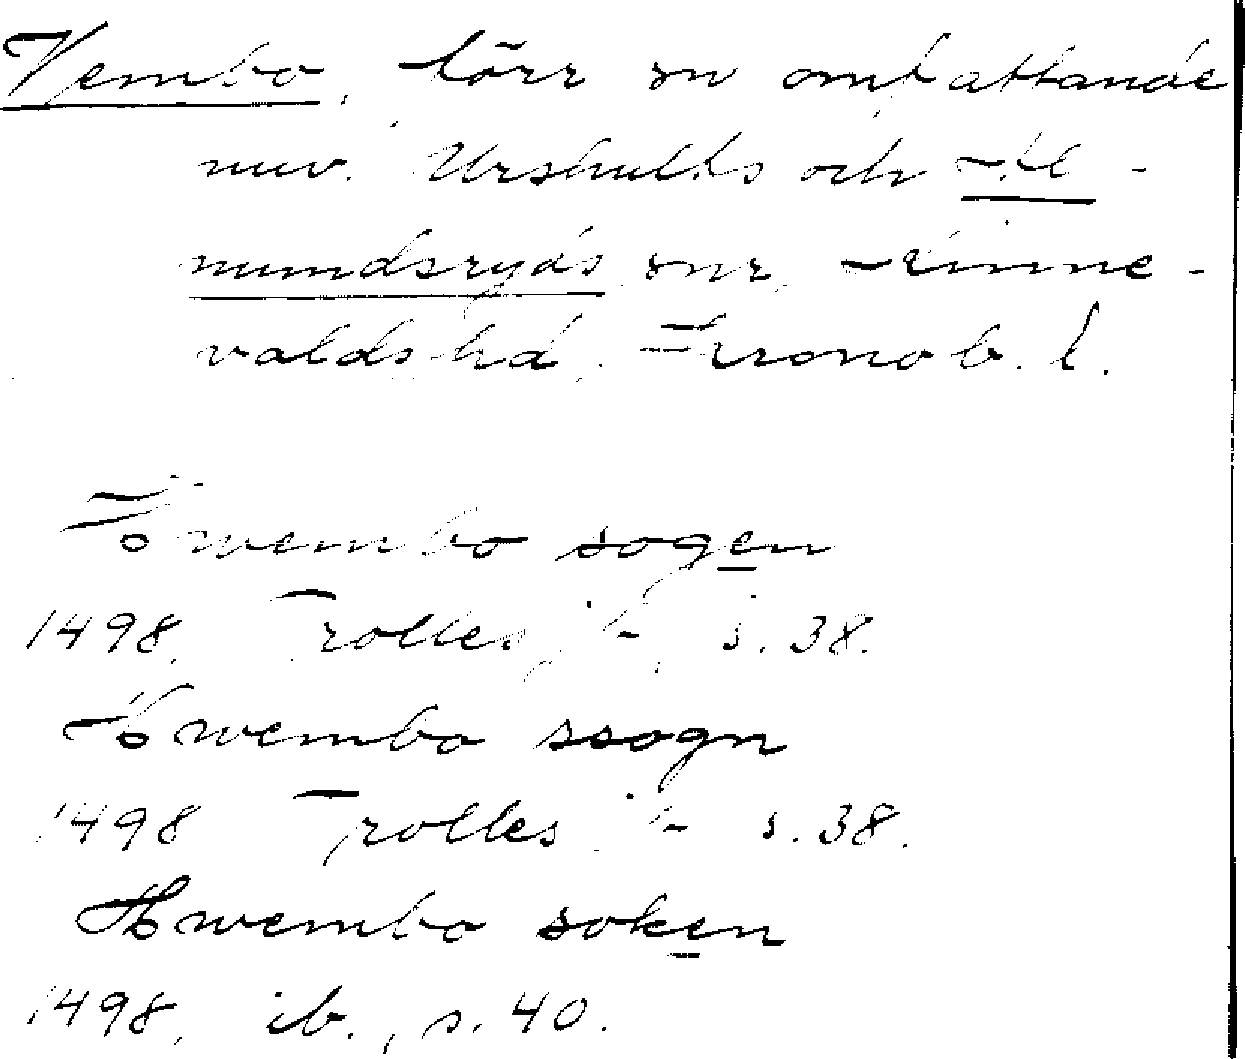 Vembo, förr sn omfattande
nuv. Urshults och Al-
mundsryds snr, Kinne-
valds hd. Kronob. l.
Hwembo sogen
1498, Trolles jb, s. 38.
Hwembo ssogn
1498 Trolles jb s. 38.
Hwembo soken
1498, ib., s. 40.